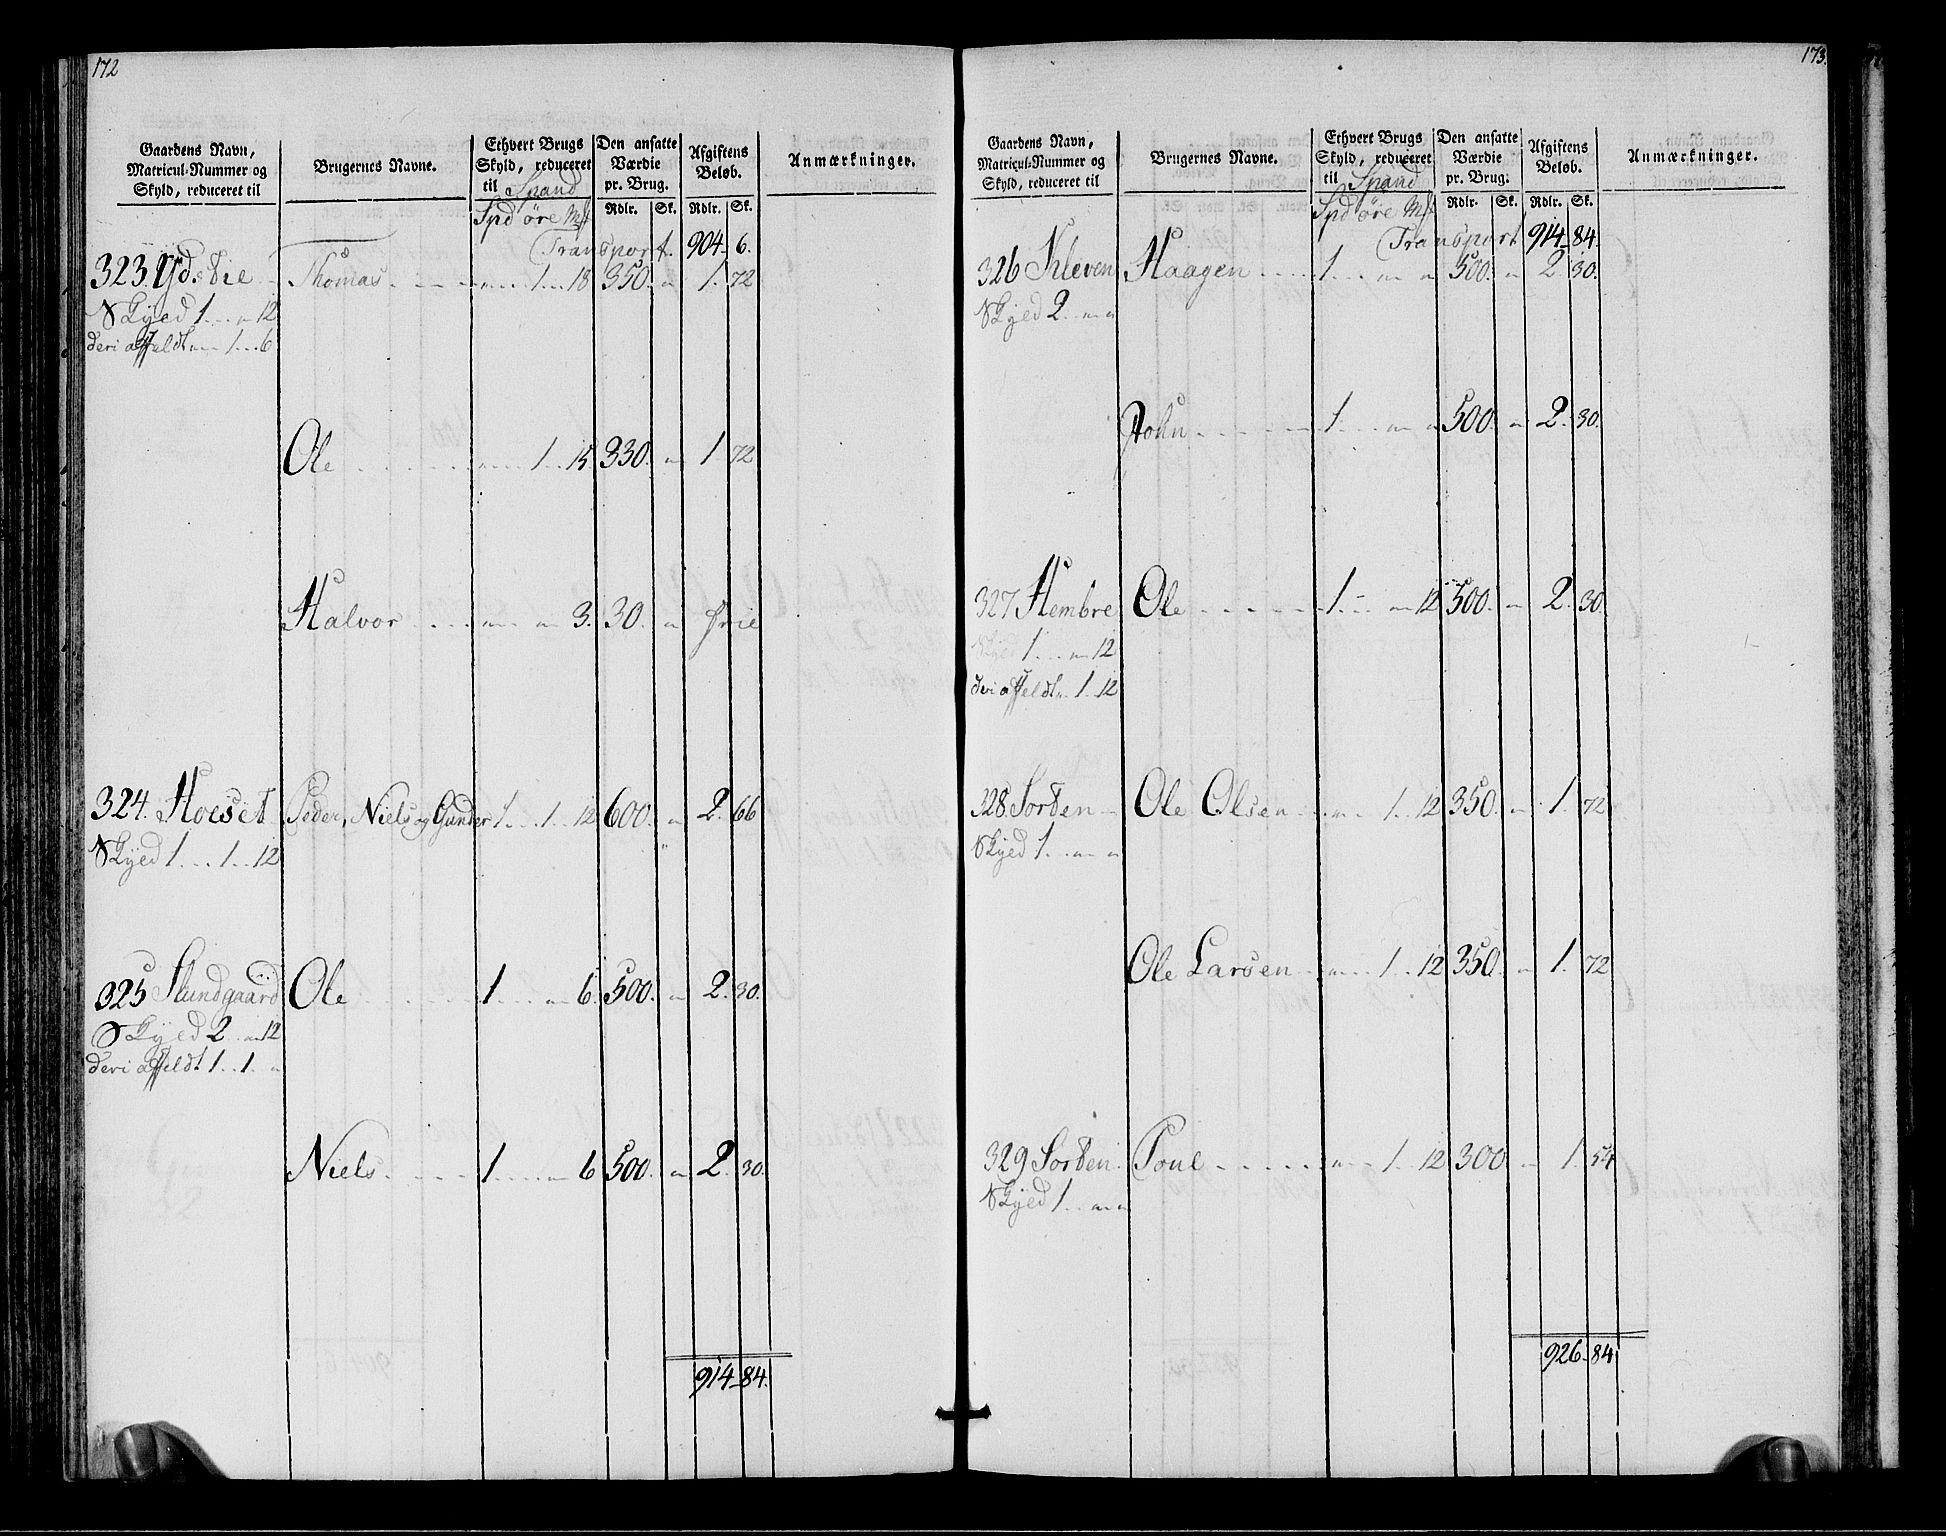 172
Gaardens Navn, Matricul-Nummer og Skyld, reduceret til | Brugernes Navne. | Ethvert Brugs Skyld, reduceret til Spand | Den ansatte Værdie pr. Brug. | Afgiftens Beløb. | Anmærkninger.
Spd øre Mk | Rdlr. | Sk. | Rdlr. | Sk.
Transport. 904. 6.
323. Ydstie Thomas 1 18 350. 1. 72
Skyld 1 12
deri affeldt 1 6
Ole 1 15 330. 1 72
Halvor 3. 30. frie
324. Hoeset Peder, Niels og Gunder 1 1 12 600. 2. 66
Skyld 1 1 12
325 Slundgaard Ole 1 6. 500. 2. 30.
Skyld 2 12
deri affeldt 1 1
Niels 1 6 500. 2. 30.
914 84.
173.
Gaardens Navn, Matricul-Nummer og Skyld, reduceret til | Brugernes Navne. | Ethvert Brugs Skyld, reduceret til Spand | Den ansatte Værdie pr. Brug. | Afgiftens Beløb. | Anmærkninger.
Spd øre Mk | Rdlr. | Sk. | Rdlr. | Sk.
Transport 914 84.
326 Kleven Haagen 1 500. 2. 30.
Skyld 2
John 1 500. 2. 30.
327 Hembre Ole 1 12 500. 2. 30.
Skyld 1 12
deri affeldt 1 12
328. Sorten Ole Olsen 1 12 350. 1. 72
Skyld 1
Ole Larsen 1 12 350. 1. 72
329 Sorten Poul 1 12 300 1. 54
Skyld 1
926 84